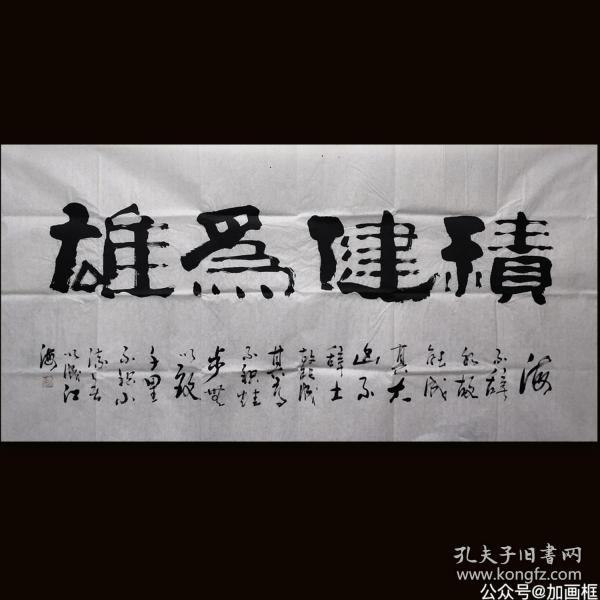 積健為雄
海
不辭
水故
能成
其大
山不
辭土
故能成
其高
不積跬
步無
以致
千里
不積小
流無
以成江
海
孔夫子旧書网
www.kongfz.com
公众号@加画框